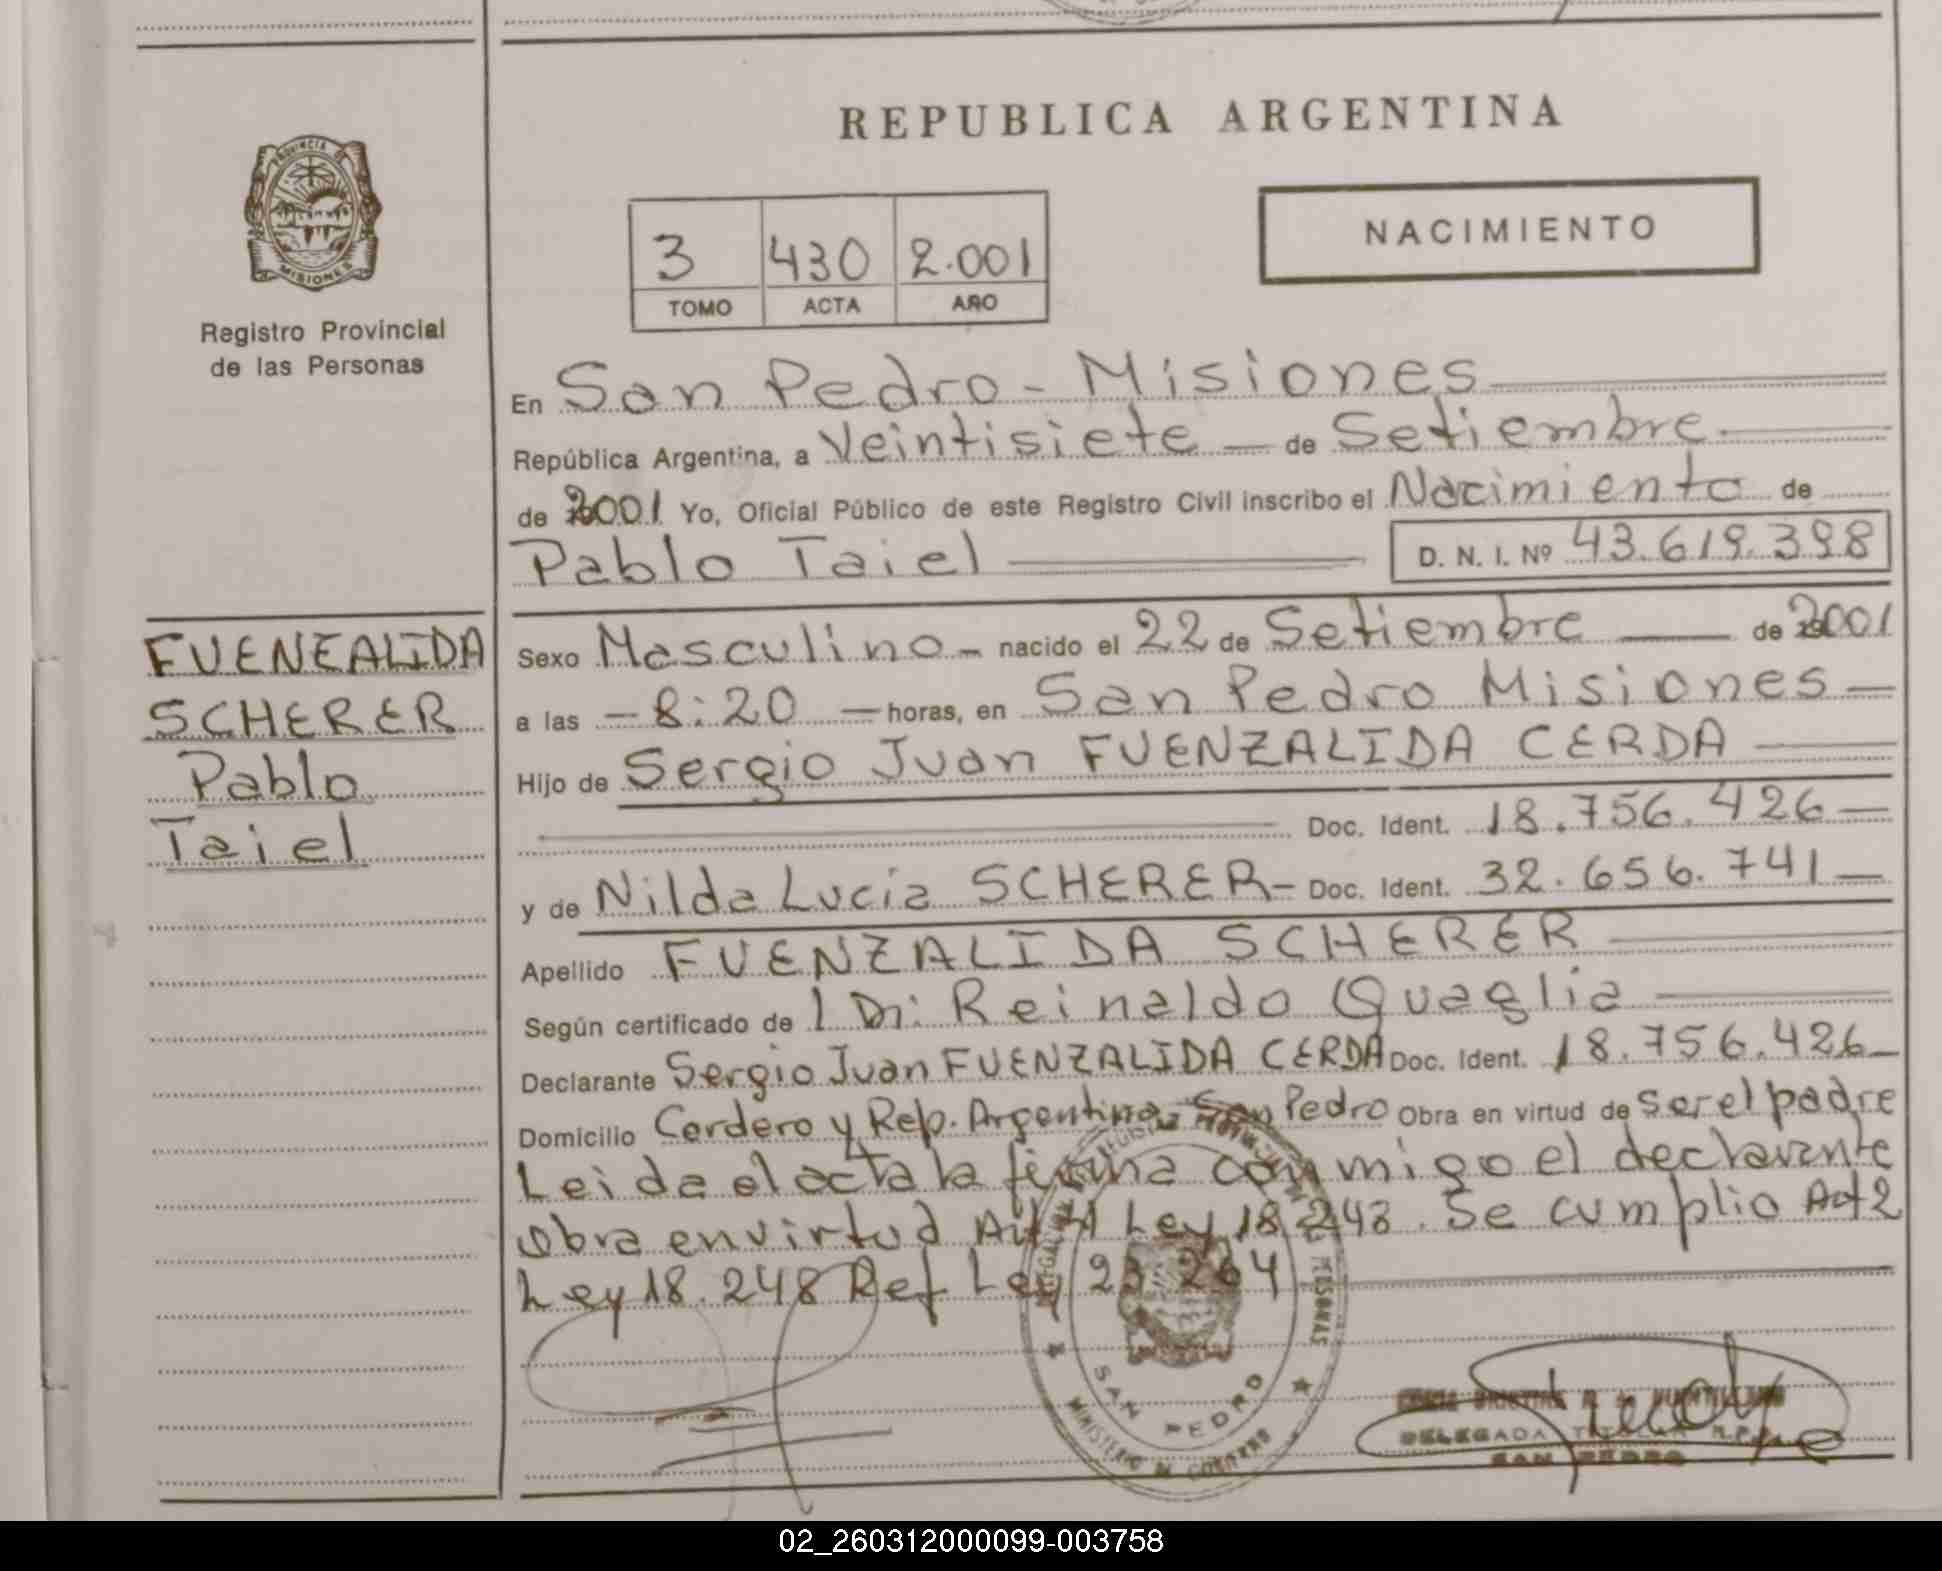 REPUBLICA ARGENTINA
PROVINCIA DE
MISIONES
Registro Provincial
de las Personas
NACIMIENTO
3 430 2.001
TOMO ACTA AÑO
En San Pedro - Misiones
República Argentina, a Veintisiete — de Setiembre
de 2001 Yo, Oficial Público de este Registro Civil inscribo el Nacimiento de
Pablo Taiel D. N. I. Nº 43.619.398
FUENZALIDA
SCHERER
Pablo
Taiel
Sexo Masculino - nacido el 22 de Setiembre — de 2001
a las - 8:20 — horas, en San Pedro Misiones —
Hijo de Sergio Juan FUENZALIDA CERDA
Doc. Ident. 18.756.426 —
y de Nilda Lucia SCHERER - Doc. Ident. 32.656.741 —
Apellido FUENZALIDA SCHERER
Según certificado de l Dr: Reinaldo Quaglia
Declarante Sergio Juan FUENZALIDA CERDA Doc. Ident. 18.756.426 —
Domicilio Cordero y Rep. Argentina - San Pedro Obra en virtud de ser el padre
Leida el acta la firma conmigo el declarante
Obra en virtud Art 4 Ley 18.248. Se cumplio Art 2
Ley 18.248 Ref Ley 23.264
SAN PEDRO
MINISTERIO DE GOBIERNO
DELEGADA TITULAR R.P.P.
SAN PEDRO
02_260312000099-003758